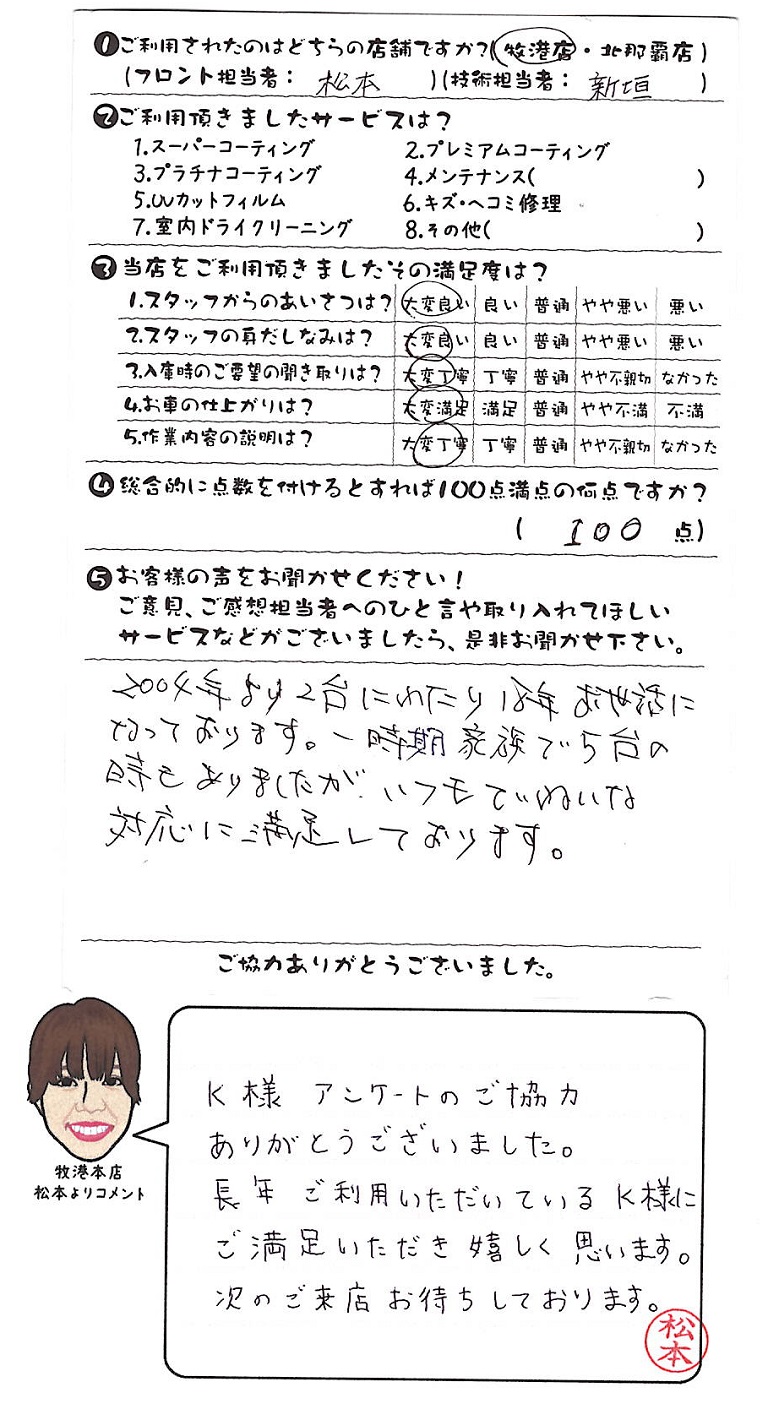 ❶ご利用されたのはどちらの店舗ですか?(牧港店・北那覇店)
(フロント担当者: 松本 )(技術担当者: 新垣 )
❷ご利用頂きましたサービスは?
1.スーパーコーティング 2.プレミアムコーティング
3.プラチナコーティング 4.メンテナンス( )
5.UVカットフィルム 6.キズ・ヘコミ修理
7.室内ドライクリーニング 8.その他( )
❸当店をご利用頂きましたその満足度は?
1.スタッフからのあいさつは? 大変良い 良い 普通 やや悪い 悪い
2.スタッフの身だしなみは? 大変良い 良い 普通 やや悪い 悪い
3.入庫時のご要望の聞き取りは? 大変丁寧 丁寧 普通 やや不親切 なかった
4.お車の仕上がりは? 大変満足 満足 普通 やや不満 不満
5.作業内容の説明は? 大変丁寧 丁寧 普通 やや不親切 なかった
❹総合的に点数を付けるとすれば100点満点の何点ですか?
( 100 点)
❺お客様の声をお聞かせください!
ご意見、ご感想担当者へのひと言や取り入れてほしい
サービスなどがございましたら、是非お聞かせ下さい。
2004年より2台にわたり18年お世話に
なっております。一時期家族で5台の
時もありましたが、いつもていねいな
対応に満足しております。
ご協力ありがとうございました。
K様 アンケートのご協力
ありがとうございました。
長年 ご利用いただいている K様に
ご満足いただき嬉しく思います。
次のご来店お待ちしております。
牧港本店
松本よりコメント
松本